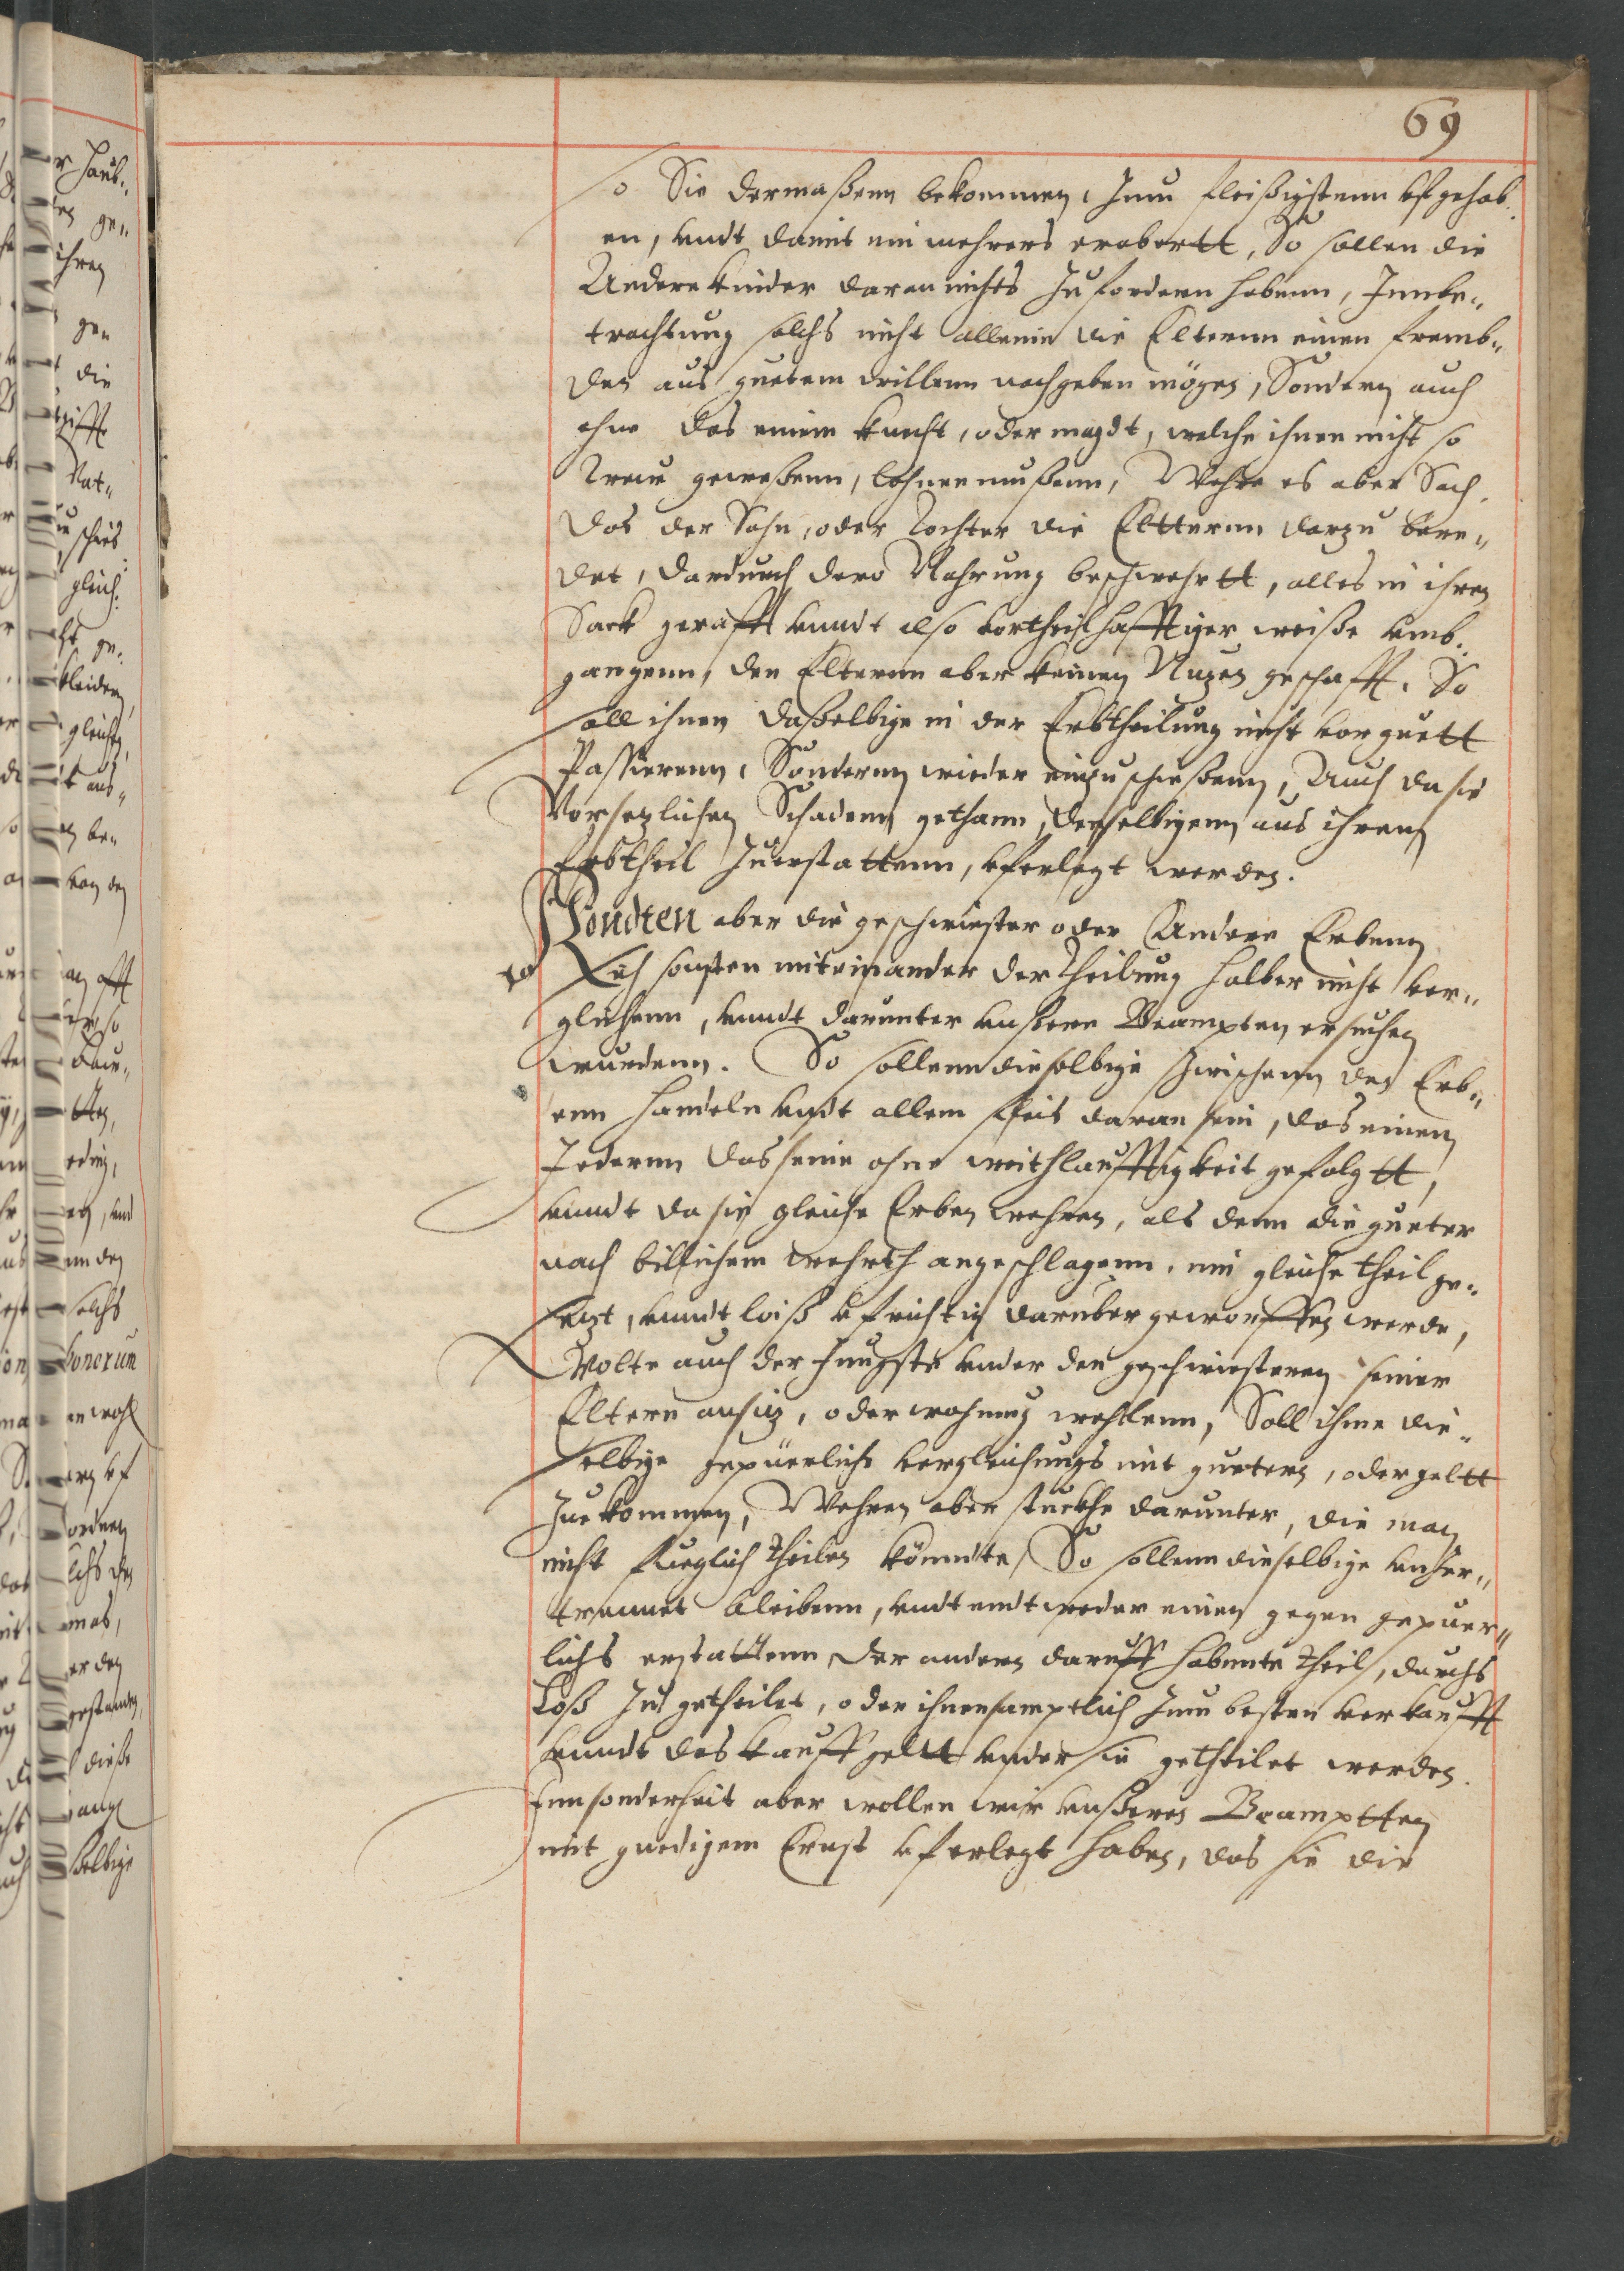 69
so Sie dermaßenn bekommen, Zum fleißigstenn vfgehob„
en, vndt damit ein mehrers erobertt, So sollen die
Andere kinder daran nichts Zufordern habenn, Innbe„
trachtung solchs nicht allein die Elternn einen fremb„
den aus guetem willenn nachgeben mögen, Sondern auch
ohne das einem knecht, oder magdt, welche ihnen nicht so
Treu geweßenn, lohnen mußenn, Wehre es aber Sach,
das der Sohn, oder Tochter die Eltternn darzu bere„
det, dardurch dero Nahrung beschwehrtt, alles in ihren
Sack gerafft vnndt also vortheilhafftiger weiße vmb„
gangenn, den Elternn aber keinen Nuzen geschafft, So
soll ihnen daßelbige in der Erbtheilung nicht vor guett
Passierenn, Sondernn wieder einzuschießenn, Auch da sie
Vorsezlichen Schadenn gethann, denselbigenn aus ihrem
Erbtheil Zuerstattenn, vferlegt werden.
Köndten aber die geschwister oder Andere Erbenn
Sich sonsten miteinander der Theilung halber nicht ver„
gleichenn, vnndt darunter vnßere Beampten ersuchen
wurdenn. So sollenn dieselbige Zwischenn den Erb„
enn handeln vndt allem fleis daran sein, das einem
Jedernn das seine ohne weithlaufftigkeit gefolgtt,
vnndt da sie gleiche Erben wehren, als denn die gueter
nach billichem wehrth angeschlagenn, inn gleiche theil ge„
sezt, vnndt loiß vfrichtig daruber geworffen werde,
Wolte auch der Jungste vnder den geschwisternn seiner
Eltern ansiz, oder wohnung wehlenn, Soll ihme die„
selbige gepüerliche vergleichungs mit guetern, oder geltt
Zuekommen, Wehren aber stuckhe darunter, die man
nicht fueglich theilen könndte, So sollenn dieselbige vnzer„
trennet bleibenn, vndt endtweder einem gegen gepuer„
lichs erstattenn, der andern daruff habennte theil, durchs
Loß Zu getheilet, oder ihnen samptlich Zum besten verkaufft
vnndt das kauffgeltt vnder sie getheilet werden.
Innsonderheit aber wollen wir vnßeren Beamptten
mit gnedigem Ernst vferlegt haben, das sie die